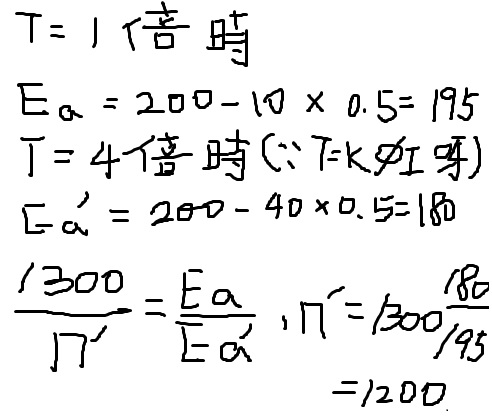 T = 1 倍時
Ea = 200 - 10 × 0.5 = 195
T = 4 倍時 (∵ T=KØI 時)
Ea' = 200 - 40 × 0.5 = 180
1300/n' = Ea/Ea' , n' = 1300 180/195
= 1200